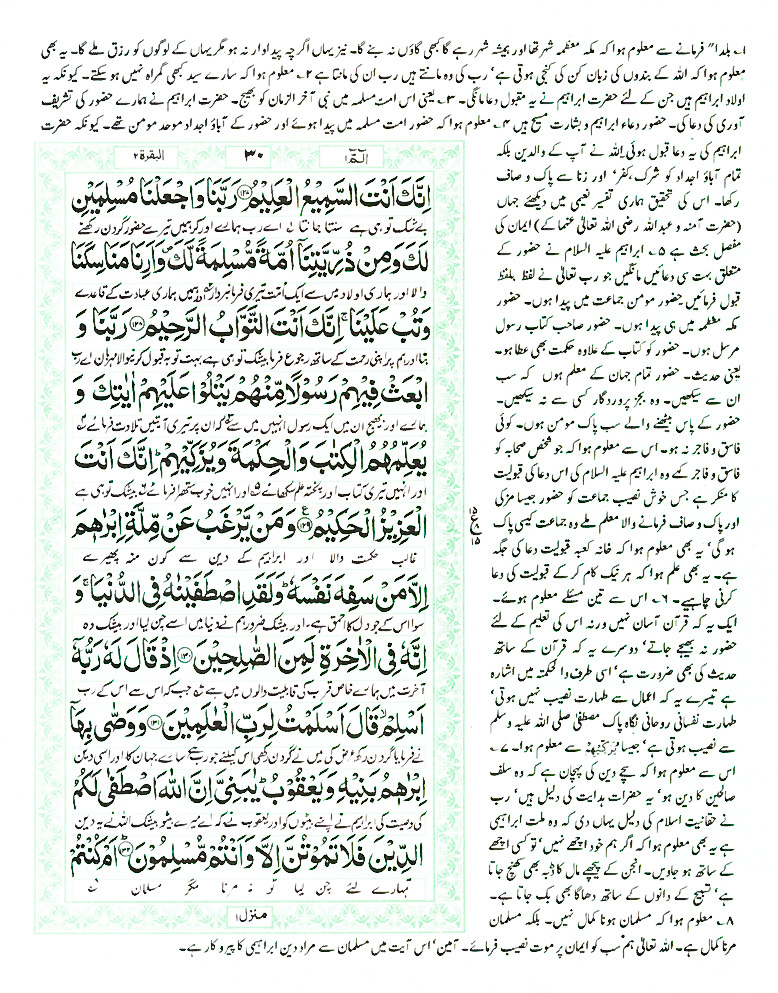 ۱۔ بلدا" فرمانے سے معلوم ہوا کہ مکہ معظمہ شہر تھا اور ہمیشہ شہر رہے گا کبھی گاؤں نہ بنے گا۔ نیز یہاں اگرچہ پیداوار نہ ہو مگر یہاں کے لوگوں کو رزق ملے گا۔ یہ بھی
معلوم ہوا کہ اللہ کے بندوں کی زبان کن کی کنجی ہوتی ہے' رب کی وہ مانتے ہیں رب ان کی مانتا ہے ۲۔ معلوم ہوا کہ سارے سید کبھی گمراہ نہیں ہو سکتے۔ کیونکہ یہ
اولاد ابراہیم ہیں جن کے لئے حضرت ابراہیم نے یہ مقبول دعا مانگی۔ ۳۔ یعنی اس امت مسلمہ میں نبی آخر الزمان کو بھیج۔ حضرت ابراہیم نے ہمارے حضور کی تشریف
آوری کی دعا کی۔ حضور دعاء ابراہیم و بشارت مسیح ہیں ۴۔ معلوم ہوا کہ حضور امت مسلمہ میں پیدا ہوئے اور حضور کے آباؤ اجداد موحد مومن تھے۔ کیونکہ حضرت
ابراہیم کی یہ دعا قبول ہوئی اللہ نے آپ کے والدین بلکہ
تمام آباؤ اجداد کو شرک' کفر' اور زنا سے پاک و صاف
رکھا۔ اس کی تحقیق ہماری تفسیر نعیمی میں دیکھئے جہاں
(حضرت آمنہ و عبداللہ رضی اللہ تعالٰی عنہما کے) ایمان کی
مفصل بحث ہے ۵۔ ابراہیم علیہ السلام نے حضور کے
متعلق بہت سی دعائیں مانگیں جو رب تعالٰی نے لفظ بلفظ
قبول فرمائیں حضور مومن جماعت میں پیدا ہوں۔ حضور
مکہ معظمہ میں ہی پیدا ہوں۔ حضور صاحب کتاب رسول
مرسل ہوں۔ حضور کو کتاب کے علاوہ حکمت بھی عطا ہو۔
یعنی حدیث۔ حضور تمام جہان کے معلم ہوں کہ سب
ان سے سیکھیں۔ وہ بجز پروردگار کسی سے نہ سیکھیں۔
حضور کے پاس بیٹھنے والے سب پاک مومن ہوں۔ کوئی
فاسق و فاجر نہ ہو۔ اس سے معلوم ہوا کہ جو شخص صحابہ کو
فاسق و فاجر کہے وہ ابراہیم علیہ السلام کی اس دعا کی قبولیت
کا منکر ہے جس خوش نصیب جماعت کو حضور جیسا مزکی
اور پاک و صاف فرمانے والا معلم ملے وہ جماعت کیسی پاک
ہو گی' یہ بھی معلوم ہوا کہ خانہ کعبہ قبولیت دعا کی جگہ
ہے۔ یہ بھی علم ہوا کہ ہر نیک کام کر کے قبولیت کی دعا
کرنی چاہیے۔ ۶۔ اس سے تین مسئلے معلوم ہوئے۔
ایک یہ کہ قرآن آسان نہیں ورنہ اس کی تعلیم کے لئے
حضور نہ بھیجے جاتے' دوسرے یہ کہ قرآن کے ساتھ
حدیث کی بھی ضرورت ہے' اسی طرف والحکمتہ میں اشارہ
ہے تیسرے یہ کہ اعمال سے طہارت نصیب نہیں ہوتی'
طہارت نفسانی روحانی نگاہ پاک مصطفٰی صلی اللہ علیہ وسلم
سے نصیب ہوتی ہے' جیسا یُزَکِّیْہِمْ سے معلوم ہوا۔ ۷۔
اس سے معلوم ہوا کہ سچے دین کی پہچان ہے کہ وہ سلف
صالحین کا دین ہو' یہ حضرات ہدایت کی دلیل ہیں' رب
نے حقانیت اسلام کی دلیل یہاں دی کہ وہ ملت ابراہیمی
ہے یہ بھی معلوم ہوا کہ اگر ہم خود اچھے نہیں' تو کسی اچھے
کے ساتھ ہو جادیں۔ انجن کے پیچھے مال کا ڈبہ بھی کھنچ جاتا
ہے' تسبیح کے دانوں کے ساتھ دھاگا بھی بک جاتا ہے۔
۸۔ معلوم ہوا کہ مسلمان ہونا کمال نہیں۔ بلکہ مسلمان
مرنا کمال ہے۔ اللہ تعالٰی ہم سب کو ایمان پر موت نصیب فرمائے۔ آمین' اس آیت میں مسلمان سے مراد دین ابراہیمی کا پیروکار ہے۔
الٓمّٓ۱ ۳۰ البقرة۲
اِنَّكَ اَنْتَ السَّمِيْعُ الْعَلِيْمُ ﴿۱۲۷﴾ رَبَّنَا وَاجْعَلْنَا مُسْلِمَيْنِ
بے شک تو ہی ہے سنتا جانتا اے رب ہمارے اور کر ہمیں تیرے حضور گردن رکھنے
لَكَ وَمِنْ ذُرِّيَّتِنَاۤ اُمَّةً مُّسْلِمَةً لَّكَ وَاَرِنَا مَنَاسِكَنَا
والا اور ہماری اولاد میں سے ایک امت تیری فرمانبردار اور ہمیں ہماری عبادت کے قاعدے
وَتُبْ عَلَيْنَا ۚ اِنَّكَ اَنْتَ التَّوَّابُ الرَّحِيْمُ ﴿۱۲۸﴾ رَبَّنَا وَ
بتا اور ہم پر اپنی رحمت کے ساتھ رجوع فرما بیشک تو ہی ہے بہت توبہ قبول کرنیوالا مہربان اے رب
ابْعَثْ فِيْهِمْ رَسُوْلًا مِّنْهُمْ يَتْلُوْا عَلَيْهِمْ اٰيٰتِكَ وَ
ہمارے اور بھیج ان میں ایک رسول انہیں میں سے کہ ان پر تیری آیتیں تلاوت فرمائے
يُعَلِّمُهُمُ الْكِتٰبَ وَالْحِكْمَةَ وَيُزَكِّيْهِمْ ؕ اِنَّكَ اَنْتَ
اور انہیں تیری کتاب اور پختہ علم سکھائے اور انہیں خوب ستھرا فرمائے بیشک تو ہی ہے
الْعَزِيْزُ الْحَكِيْمُ ﴿۱۲۹﴾ وَمَنْ يَّرْغَبُ عَنْ مِّلَّةِ اِبْرٰهٖمَ
غالب حکمت والا اور ابراہیم کے دین سے کون منہ پھیرے
اِلَّا مَنْ سَفِهَ نَفْسَهٗ ؕ وَلَقَدِ اصْطَفَيْنٰهُ فِى الدُّنْيَا ۚ وَ
سوا اس کے جو دل کا احمق ہے اور بیشک ضرور ہم نے دنیا میں اسے چن لیا اور بیشک وہ
اِنَّهٗ فِى الْاٰخِرَةِ لَمِنَ الصّٰلِحِيْنَ ﴿۱۳۰﴾ اِذْ قَالَ لَهٗ رَبُّهٗۤ
آخرت میں ہمارے خاص قرب کی قابلیت والوں میں ہے جب کہ اس سے اس کے رب
اَسْلِمْ ۙ قَالَ اَسْلَمْتُ لِرَبِّ الْعٰلَمِيْنَ ﴿۱۳۱﴾ وَوَصّٰى بِهَاۤ
نے فرمایا گردن رکھ عرض کی میں نے گردن رکھی اس کیلئے جو رب ہے سارے جہان کا اور اسی دین
اِبْرٰهٖمُ بَنِيْهِ وَيَعْقُوْبُ ؕ يٰبَنِىَّ اِنَّ اللّٰهَ اصْطَفٰى لَكُمُ
کی وصیت کی ابراہیم نے اپنے بیٹوں کو اور یعقوب نے کہ اے میرے بیٹو بیشک اللہ نے یہ دین
الدِّيْنَ فَلَا تَمُوْتُنَّ اِلَّا وَاَنْتُمْ مُّسْلِمُوْنَ ﴿۱۳۲﴾ اَمْ كُنْتُمْ
تمہارے لئے چن لیا تو نہ مرنا مگر مسلمان
منزل۱
۱۵
ع
۱۵